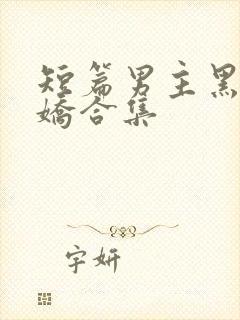 短篇男主黑
嬌合集
字妍